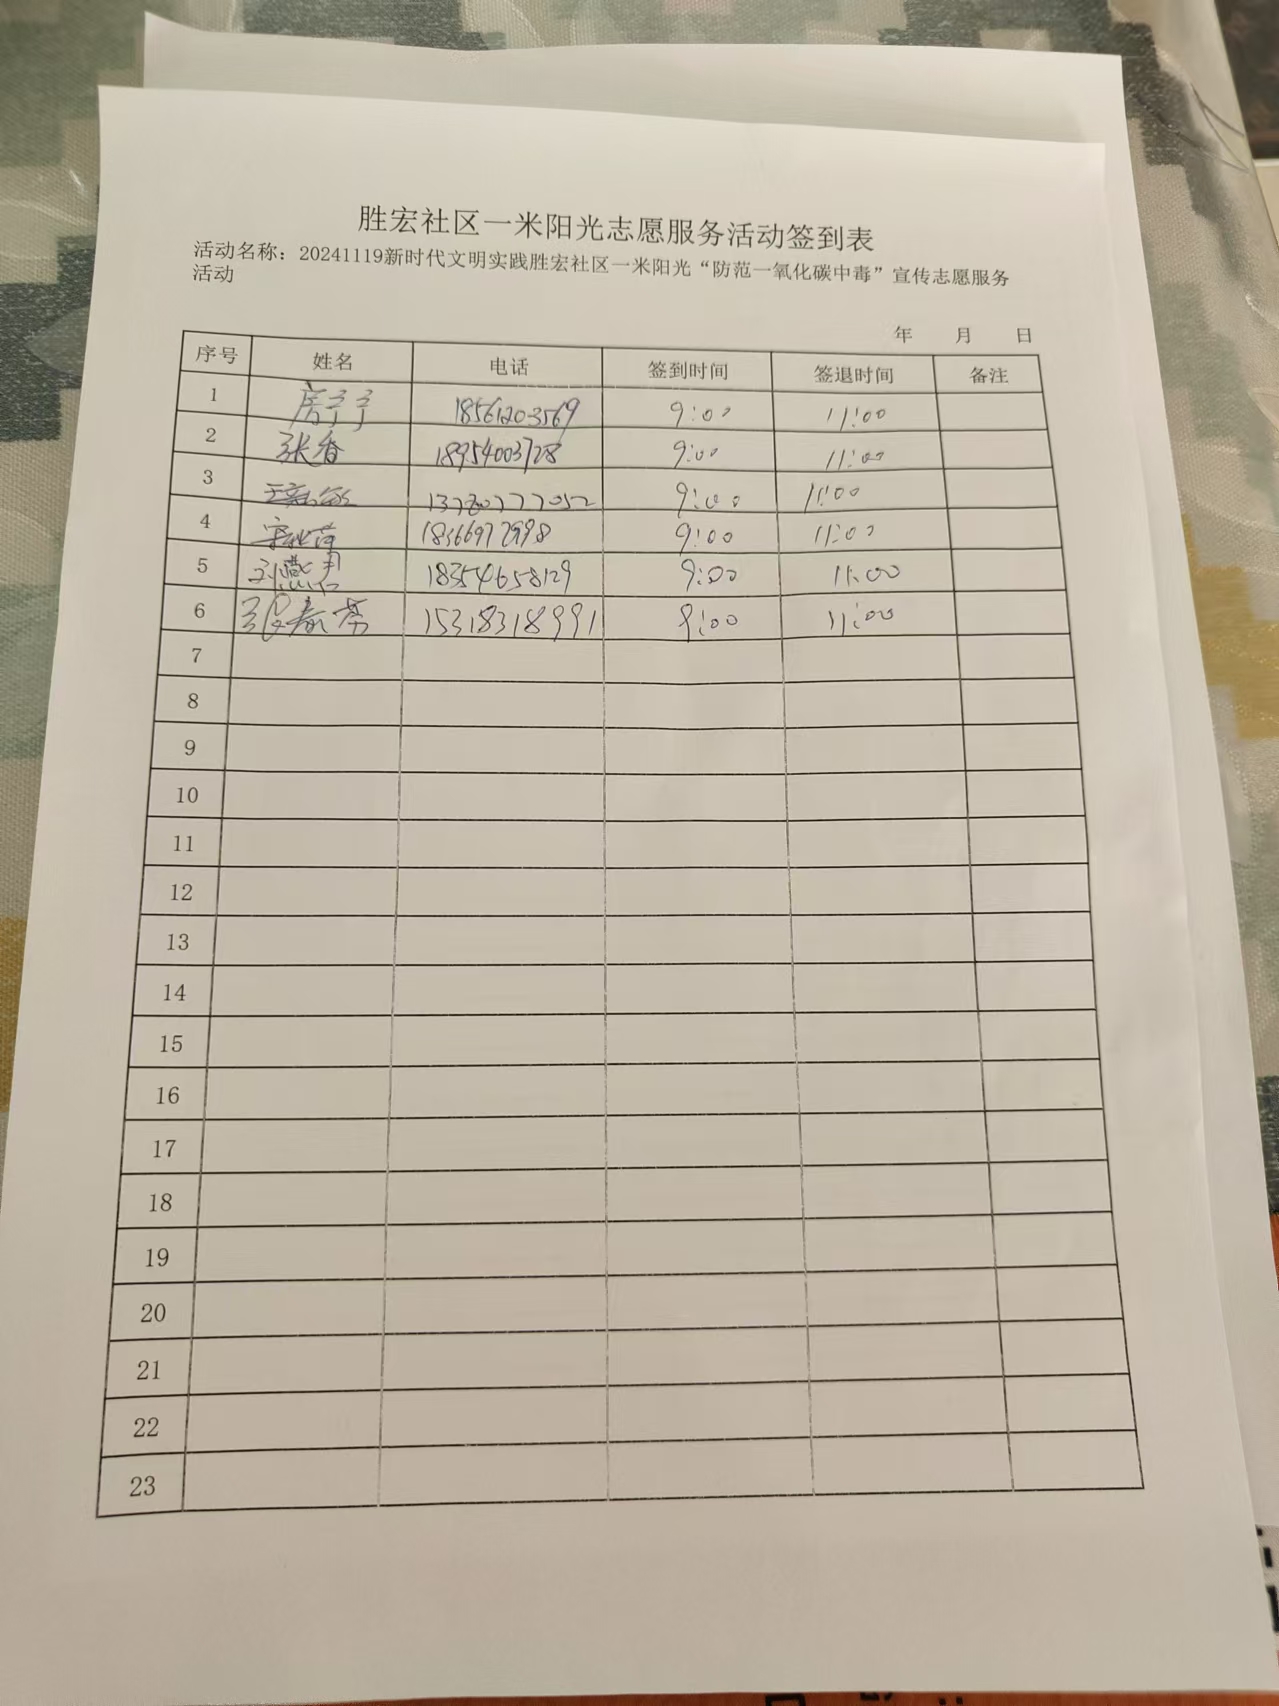 胜宏社区一米阳光志愿服务活动签到表
活动名称：20241119新时代文明实践胜宏社区一米阳光“防范一氧化碳中毒”宣传志愿服务
活动
年 月 日
序号 姓名 电话 签到时间 签退时间 备注
1 房孑孑 18561203569 9:00 11:00
2 张香 18954003728 9:00 11:00
3 13780777052 9:00 11:00
4 18366972998 9:00 11:00
5 刘燕君 18354658129 9:00 11:00
6 张春 15318318991 9:00 11:00
7
8
9
10
11
12
13
14
15
16
17
18
19
20
21
22
23